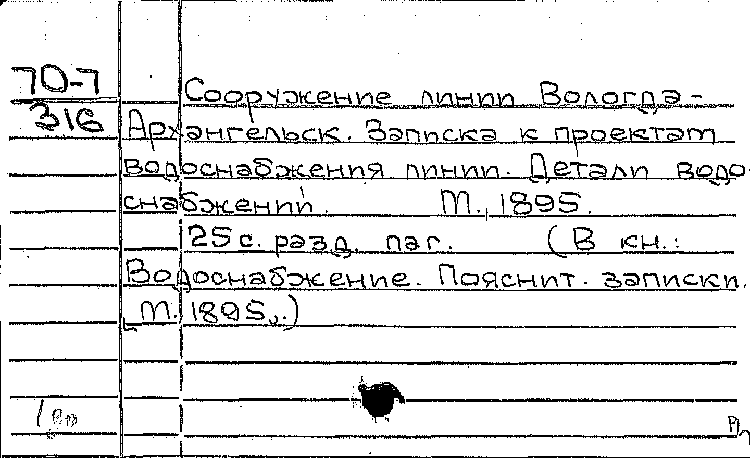 70-7
316
Сооружение линии Вологда-
Архангельск. Записка к проектам
водоснабжения линии. Детали водо-
снабжений. М., 1895.
25 с. разд. паг. (В кн.:
Водоснабжение. Пояснит. записки.
М. 1895.)